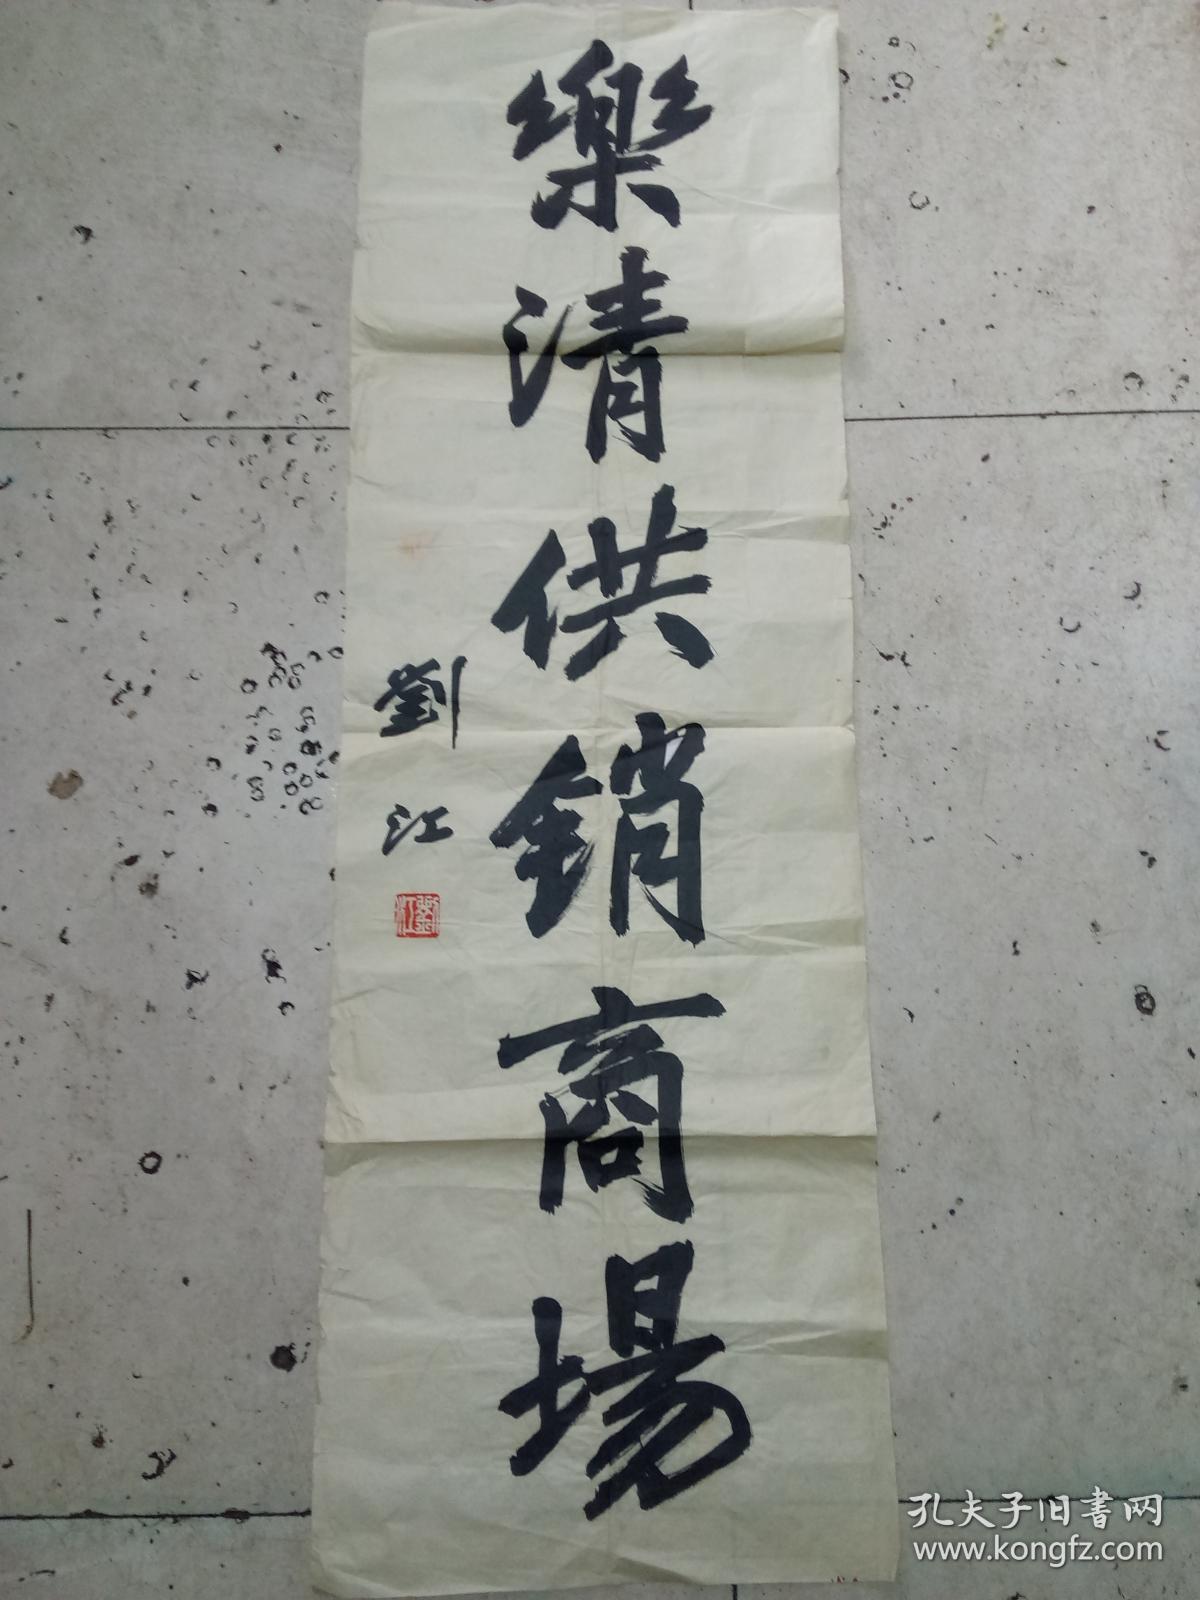 樂清供銷商場
劉江
劉江
孔夫子旧书网
www.kongfz.com